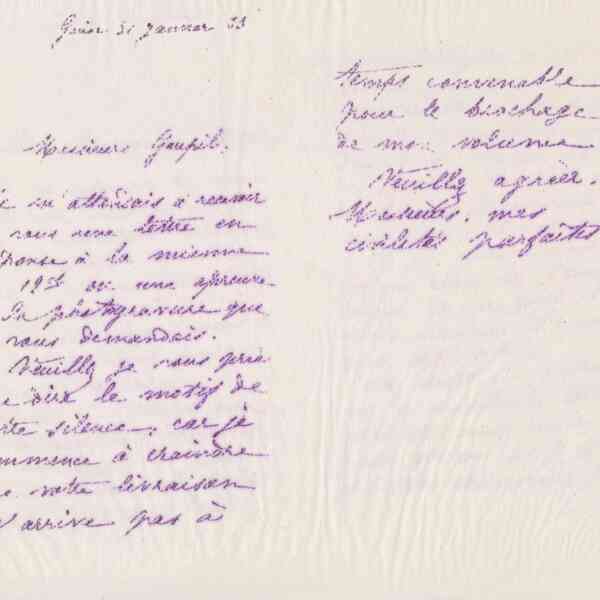 31 Janvier 33
Messieurs Goupil.
m'attendais à recevoir
vous une lettre en
réponse à la mienne
19 ct ou une épreuve
la photogravure que
vous demandais.
Veuillez je vous prie
dire le motif de
silence, car je
commence à craindre
votre livraison
n'arrive pas à
temps convenable
pour le brochage
de mon volume
Veuillez agréer.
Messieurs, mes
civilités parfaites